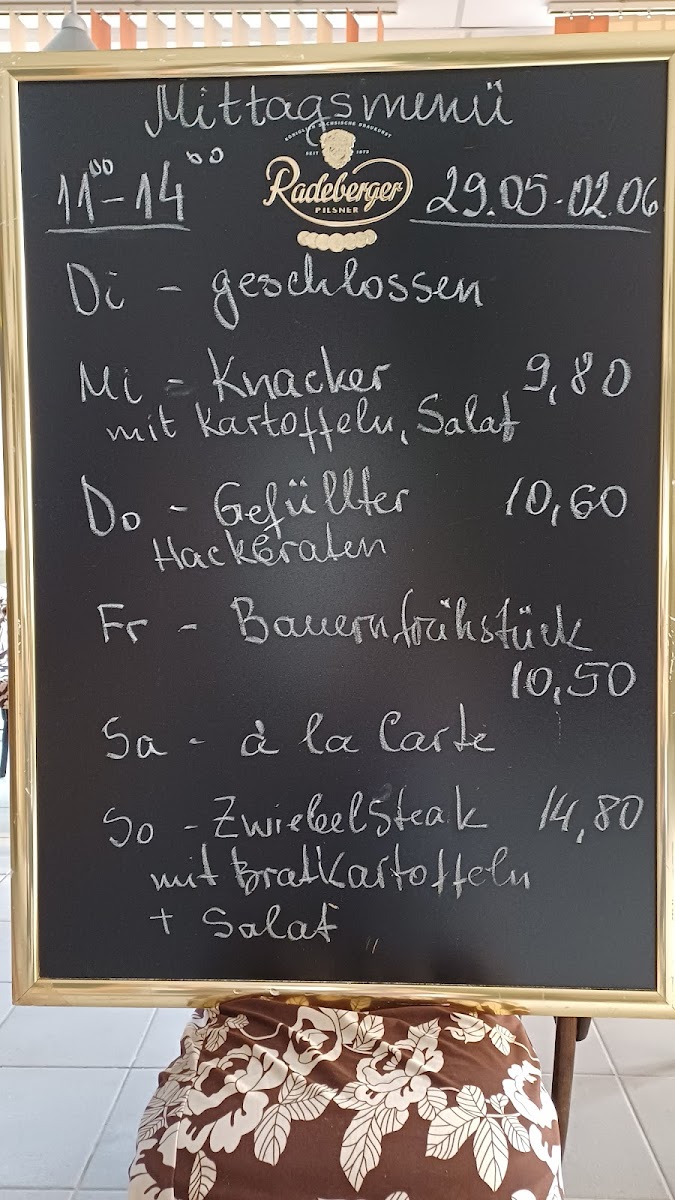 Mittagsmenü
KÖNIGLICH SÄCHSISCHE BRAUKUNST
SEIT 1872
11⁰⁰ - 14⁰⁰ Radeberger 29.05-02.06
PILSNER
Di - geschlossen
Mi - Knacker 9,80
mit Kartoffeln, Salat
Do - Gefüllter 10,60
Hackbraten
Fr - Bauernfrühstück
10,50
Sa - à la Carte
So - Zwiebelsteak 14,80
mit Bratkartoffeln
+ Salat